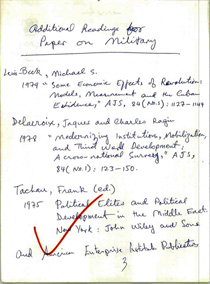 Additional Readings for
Paper on Military
Beck, Michael S.
1979 "Some Economic Effects of Revolution:
Models, Measurement and the Cuban
Evidence," AJS, 84 (No. 5): 1127-1149
Delacroix, Jaques and Charles Ragin
1978 "Modernizing Institutions, Mobilization,
and Third World Development,
A cross-national Survey," AJS,
84 (No. 1): 123-150.
Tachau, Frank (ed.)
1975 Political Elites and Political
Development in the Middle East.
New York: John Wiley and Sons
And American Enterprise Institute Publication
3